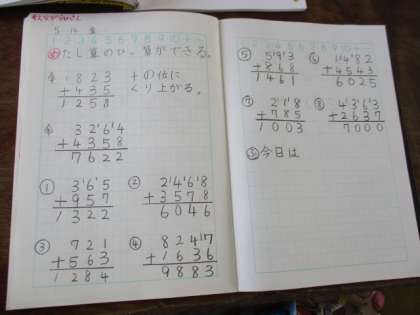 め たし算のひっ算ができる。
823
+435
1258
十の位に
くり上がる。
3 2'6'4
+4358
7622
① 3'6'5
+957
1322
② 2'4'6'8
+3578
6046
③ 721
+563
1284
④ 824'7
+1636
9883
⑤ 5'9'3
+868
1461
⑥ 1'4'82
+4543
6025
⑦ 2'1'8
+785
1003
⑧ 4'3'6'3
+2637
7000
今日は